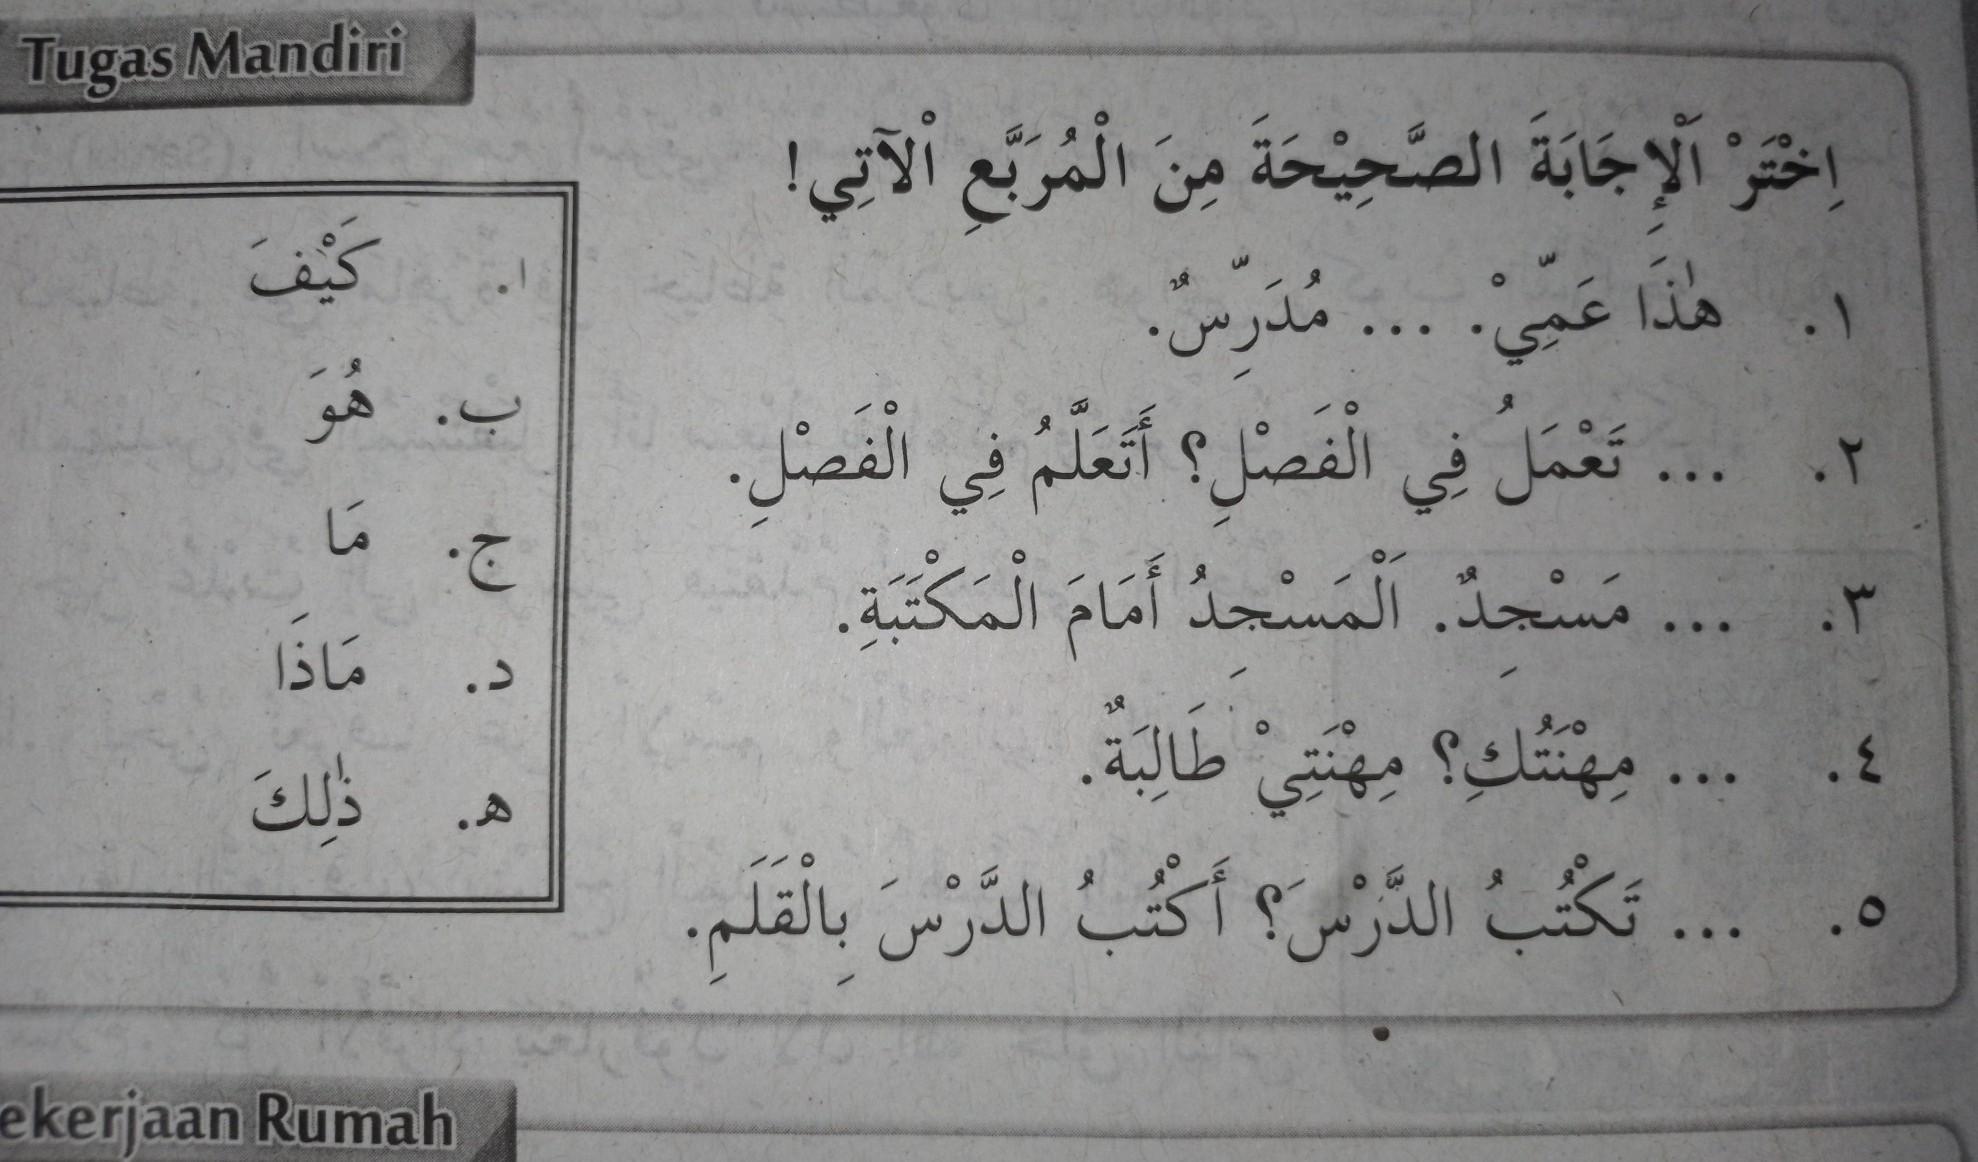 Tugas Mandiri
اِخْتَرْ اَلْإِجَابَةَ الصَّحِيْحَةَ مِنَ الْمُرَبَّعِ الْآتِي!
١. هٰذَا عَمِّيْ. ... مُدَرِّسٌ.
٢. ... تَعْمَلُ فِي الْفَصْلِ؟ أَتَعَلَّمُ فِي الْفَصْلِ.
٣. ... مَسْجِدٌ. اَلْمَسْجِدُ أَمَامَ الْمَكْتَبَةِ.
٤. ... مِهْنَتُكِ؟ مِهْنَتِيْ طَالِبَةٌ.
٥. ... تَكْتُبُ الدَّرْسَ؟ أَكْتُبُ الدَّرْسَ بِالْقَلَمِ.
ا. كَيْفَ
ب. هُوَ
ج. مَا
د. مَاذَا
ه. ذٰلِكَ
ekerjaan Rumah